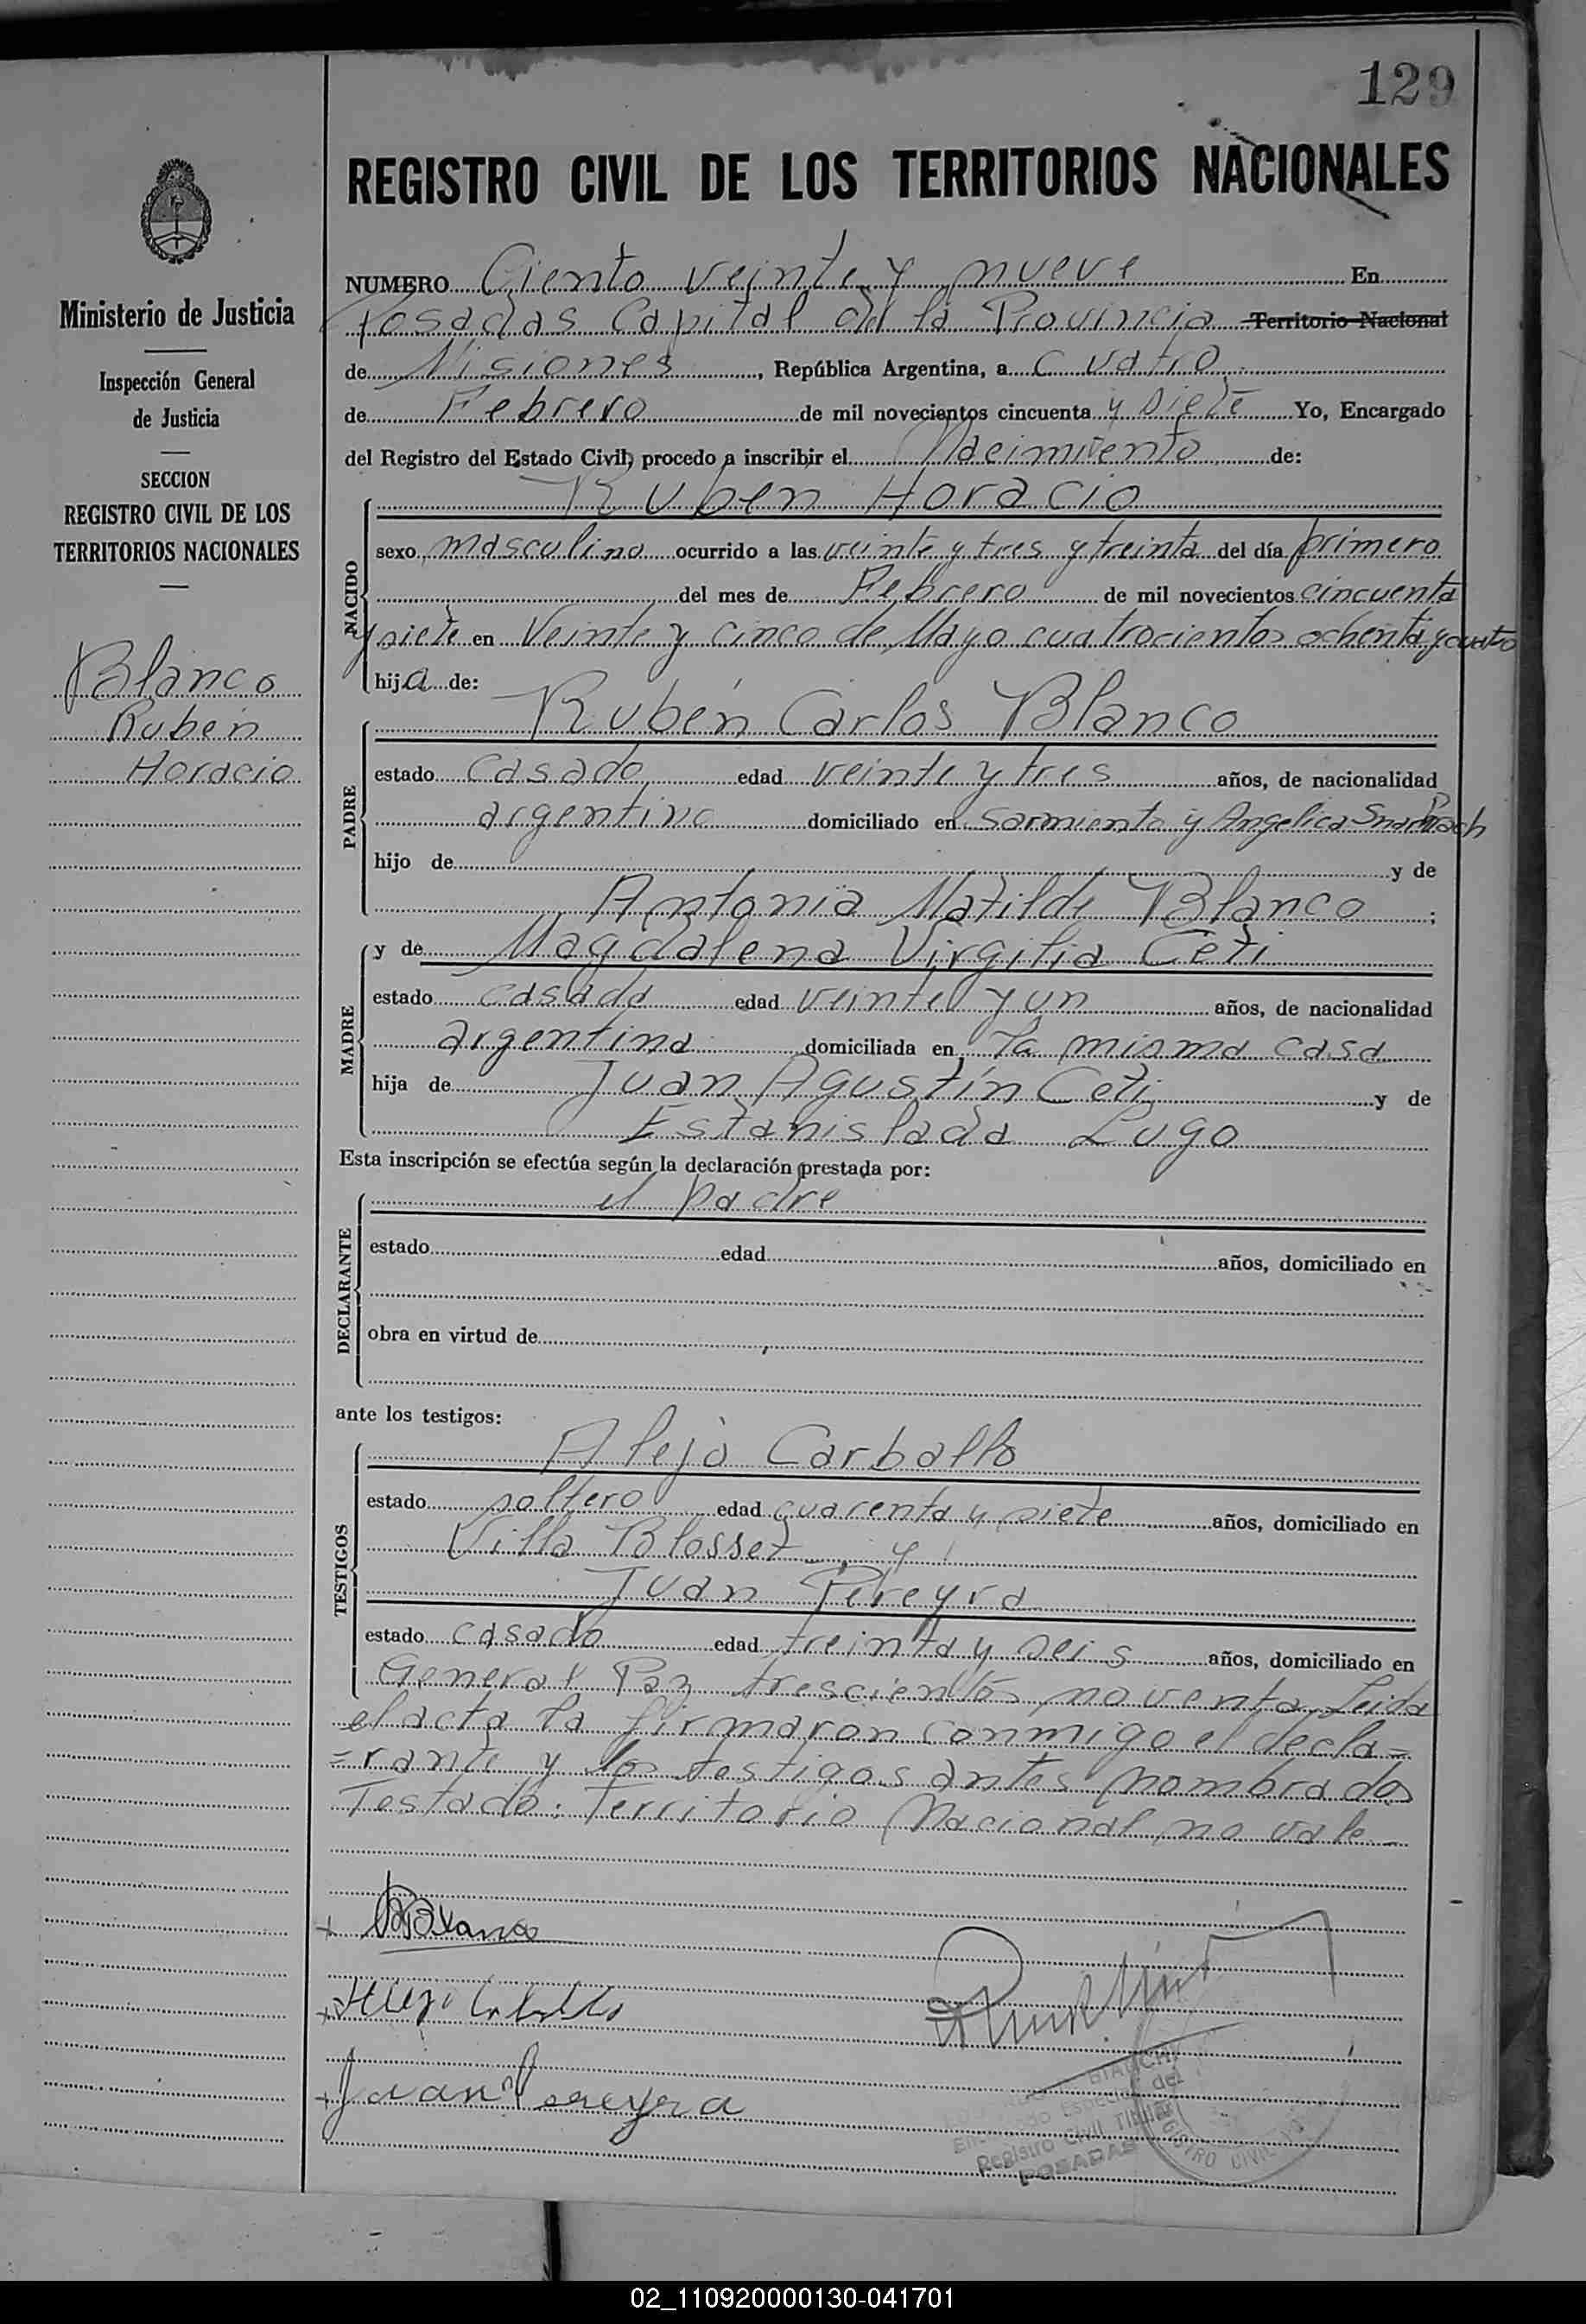 129
REGISTRO CIVIL DE LOS TERRITORIOS NACIONALES
Ministerio de Justicia
Inspección General
de Justicia
SECCION
REGISTRO CIVIL DE LOS
TERRITORIOS NACIONALES
Blanco
Ruben
Horacio
NUMERO Ciento veinte y nueve En
Posadas Capital de la Provincia Territorio Nacional
de Misiones, República Argentina, a cuatro
de Febrero de mil novecientos cincuenta y siete Yo, Encargado
del Registro del Estado Civil, procedo a inscribir el Nacimiento de:
Ruben Horacio
NACIDO
sexo masculino ocurrido a las veinte y tres y treinta del día primero
del mes de Febrero de mil novecientos cincuenta
y siete en Veinte y cinco de Mayo cuatrocientos ochenta y cuatro
hija de:
Rubén Carlos Blanco
PADRE
estado casado edad veinte y tres años, de nacionalidad
argentino domiciliado en Sarmiento y Angelica
hijo de y de
Antonia Matilde Blanco;
y de Magdalena Virgilia Ceti
MADRE
estado casada edad veinte y un años, de nacionalidad
argentina domiciliada en la misma casa
hija de Juan Agustín Ceti y de
Estanislada Lugo
Esta inscripción se efectúa según la declaración prestada por:
el padre
DECLARANTE
estado edad años, domiciliado en
obra en virtud de
ante los testigos:
Alejo Carballo
TESTIGOS
estado soltero edad cuarenta y siete años, domiciliado en
Villa Blosset y
Juan Pereyra
estado casado edad treinta y seis años, domiciliado en
General Paz trescientos noventa. Leida
el acta la firmaron conmigo el decla=
=rante y los testigos antes nombrados
Testado: Territorio Nacional no vale-
RBlanco
Alejo Carballo
Juan Pereyra
BIANCHI
Encargado Especial del
Registro Civil Titular
POSADAS
REGISTRO CIVIL
02_110920000130-041701